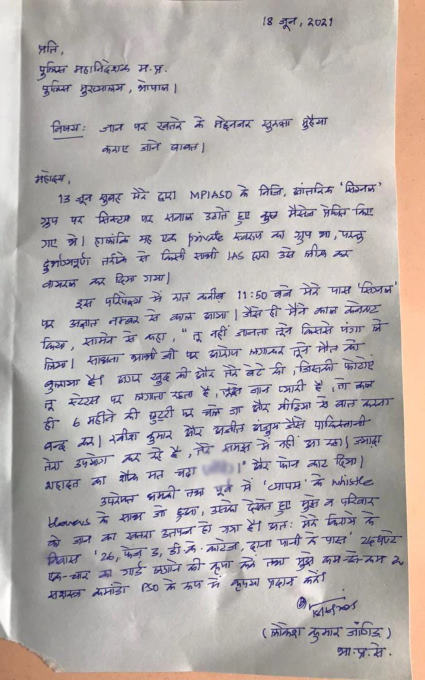 18 जून, 2021
प्रति,
पुलिस महानिदेशक म.प्र.
पुलिस मुख्यालय, भोपाल।
विषय: जान पर खतरे के मद्देनजर सुरक्षा मुहैया
कराए जाने बाबत।
महोदय,
13 जून सुबह मेरे द्वारा MPIASO के निजि, आंतरिक 'सिग्नल'
ग्रुप पर सिस्टम पर सवाल उठाते हुए कुछ मैसेज प्रेषित किए
गए थे। हालांकि यह एक private स्वरूप का ग्रुप था, परन्तु
दुर्भाग्यपूर्ण तरीके से किसी साथी IAS द्वारा उसे लीक कर
वायरल कर दिया गया।
इस परिप्रेक्ष्य में रात करीब 11:50 बजे मेरे पास 'सिग्नल'
पर अज्ञात नम्बर से काल आया। जैसे ही मैंने काल कनेक्ट
किया, सामने से कहा, "तू नहीं जानता तूने किससे पंगा ले
लिया। साधना भाभी जी पर आरोप लगाकर तूने मौत को
बुलाया है। अगर खुद की और तेरे बेटे की, जिसकी फोटोएं
तू स्टेटस पर लगाता रहता है, तुझे जान प्यारी है, तो कल
ही 6 महीने की छुट्टी पर चले जा और मीडिया से बात करना
बन्द कर। रवीश कुमार और अजीत अंजुम जैसे पाकिस्तानी
तेरा उपयोग कर रहे है, तेरे समझ में नहीं आ रहा। ज्यादा
शहादत का शौक मत चढ़ा" और फोन काट दिया।
उपरोक्त धमकी तथा पूर्व में 'व्यापम' के whistle
blowers के साथ जो हुआ, उसको देखते हुए मुझे व परिवार
को जान का खतरा उत्पन्न हो गया है। अतः मेरे किराये के
निवास '26, फेज 3, डी.के. काटेज, दाना पानी के पास' 24 घण्टे
एक-चार का गार्ड लगाने की कृपा करें तथा मुझे कम-से-कम 2
सशस्त्र कमांडो PSO के रूप में कृपया प्रदान करें।
(लोकेश कुमार जांगिड़)
भा.प्र.से.